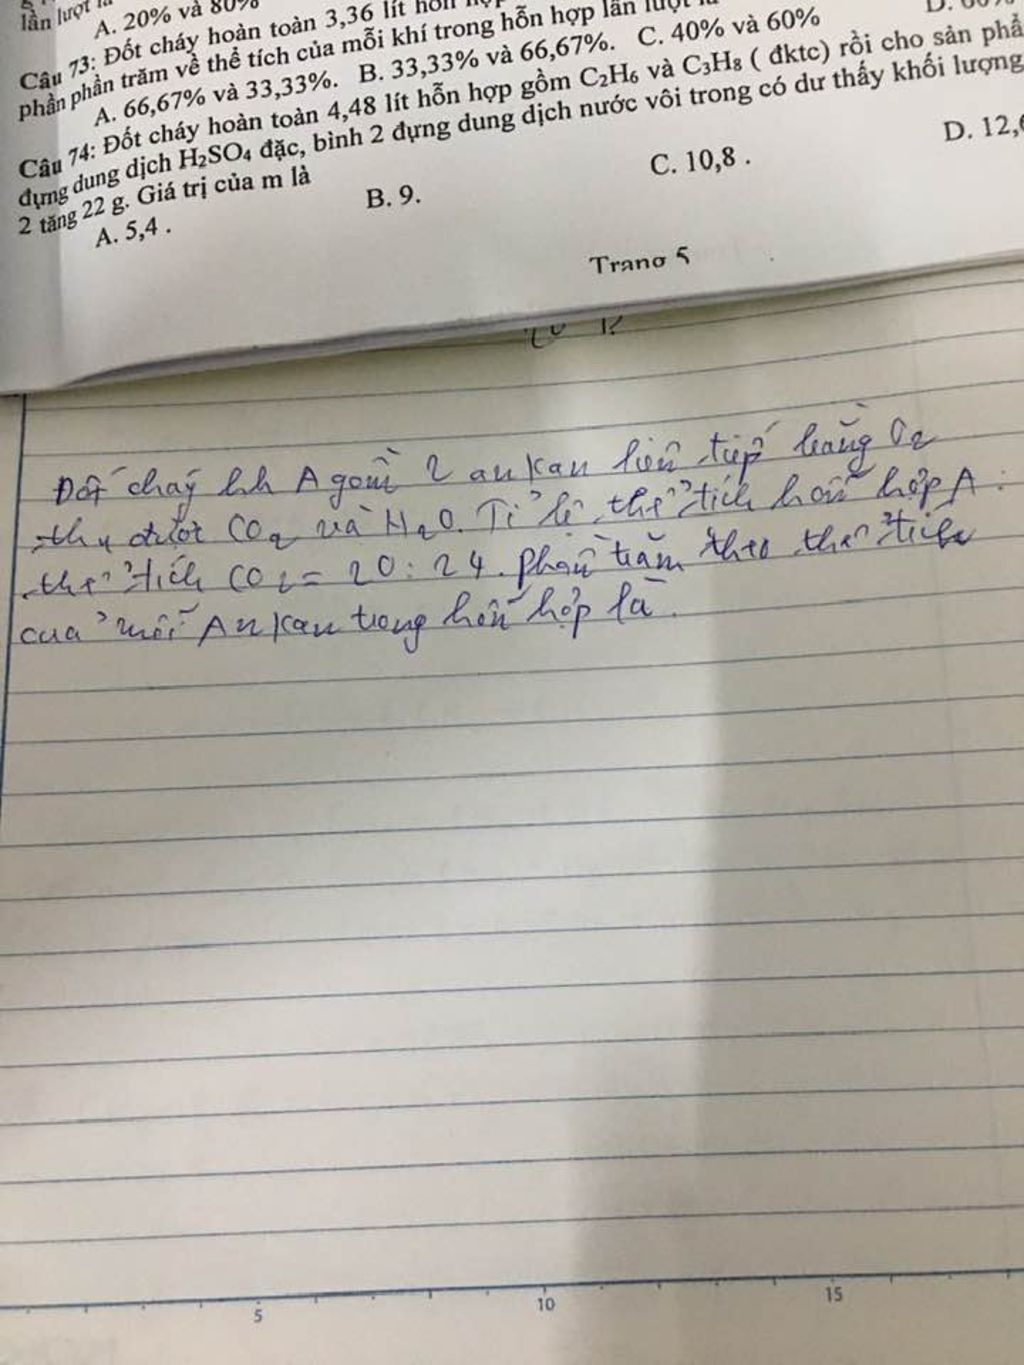 lần lượt là
A. 20% và 80%
Câu 73: Đốt cháy hoàn toàn 3,36 lít hỗn hợp
phần phần trăm về thể tích của mỗi khí trong hỗn hợp lần lượt là
A. 66,67% và 33,33%. B. 33,33% và 66,67%. C. 40% và 60%
Câu 74: Đốt cháy hoàn toàn 4,48 lít hỗn hợp gồm C₂H₆ và C₃H₈ ( đktc) rồi cho sản phẩ
đựng dung dịch H₂SO₄ đặc, bình 2 đựng dung dịch nước vôi trong có dư thấy khối lượng
2 tăng 22 g. Giá trị của m là
A. 5,4 . B. 9. C. 10,8 . D. 12,6
Trang 5
Đốt cháy hh A gồm 2 ankan liên tiếp bằng O₂
thu được CO₂ và H₂O. Tỉ lệ thể tích hỗn hợp A :
thể tích CO₂ = 20 : 24. Phần trăm theo thể tích
của mỗi Ankan trong hỗn hợp là.
5 10 15